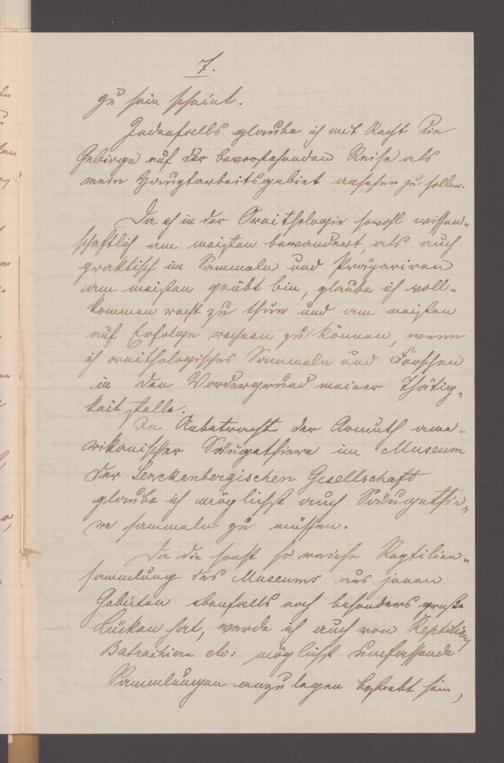 7.
zu sein scheint.
Jedenfalls glaube ich mit Recht die
Gebirge auf der bevorstehenden Reise als
mein Hauptarbeitsgebiet ansehen zu sollen.
Da ich in der Ornithologie sowohl wissen-
schaftlich am meisten bewandert, als auch
praktisch im Sammeln und Präpariren
am meisten geübt bin, glaube ich voll-
kommen recht zu thun und am meisten
auf Erfolge rechnen zu können, wenn
ich ornithologisches Sammeln und Forschen
in den Vordergrund meiner Thätig-
keit stelle.
In Anbetracht der Armuth ame-
rikanischer Säugethiere im Museum
der Senckenbergischen Gesellschaft
glaube ich möglichst auch Säugethie-
re sammeln zu müssen.
Da die sonst so reiche Reptilien-
sammlung des Museums aus jenen
Gebieten ebenfalls noch besonders große
Lücken hat, werde ich auch von Reptilien,
Batrachiern etc: möglichst umfassende
Sammlungen anzulegen bestrebt sein,